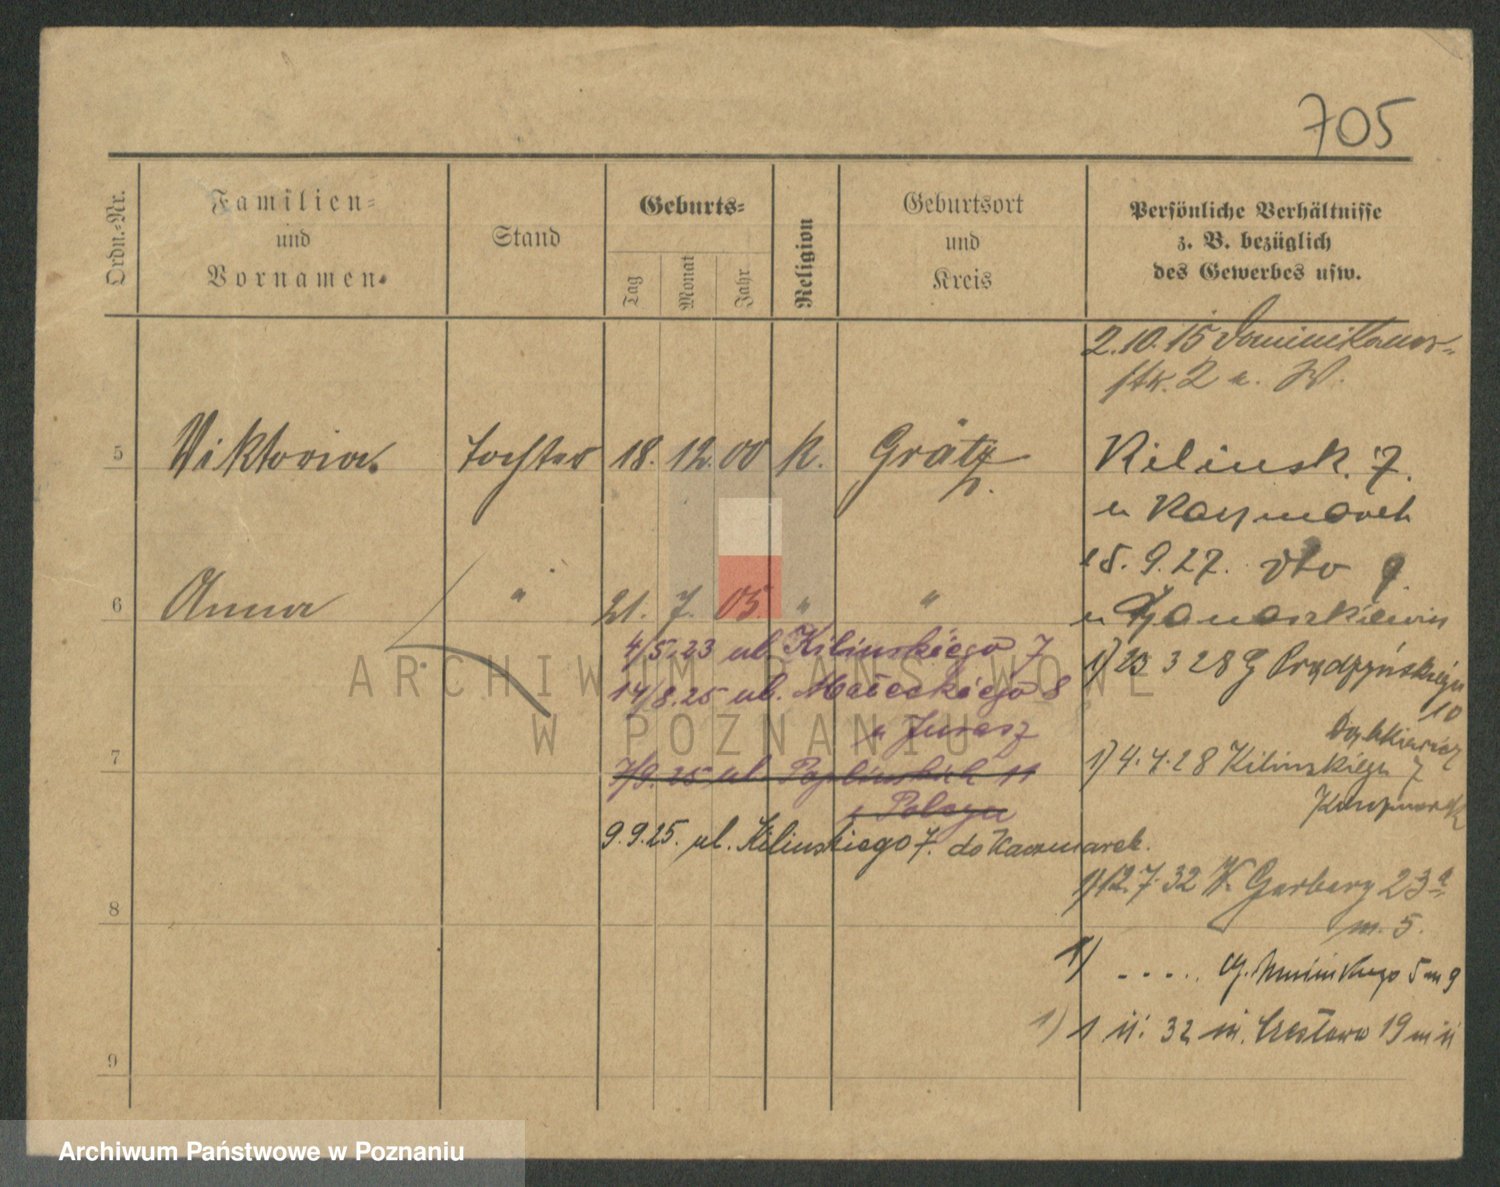 705
Ordn.-Nr.
Familien-
und
Vornamen.
Stand
Geburts-
Tag
Monat
Jahr
Religion
Geburtsort
und
Kreis
Persönliche Verhältnisse
z. B. bezüglich
des Gewerbes usw.
2.10.15 Dominikaner-
str. 2 a. W.
5 Viktoria Tochter 18. 12. 00 k. Grätz
Kilinsk. 7.
u Kaczmarek
15. 9. 27. dto 9
6 Anna " 21. 7. 05. " "
4/5.23 ul. Kilinskiego 7
14/8.25 ul. Małeckiego 8
u Jurasz
1) 23 3 28 G Prądzyńskiego
10
7
7/9.25 ul. 11
9.9.25. ul. Kilinskiego 7. do Kaczmarek.
1) 4.4.28 Kilinskiego 7
Kaczmarek
1) 12.7.32 W. Garbary 23a
m. 5.
8
1) . . . . . 5 m 9
1) 1 11. 32 19 m 11
9
ARCHIWUM PAŃSTWOWE
W POZNANIU
Archiwum Państwowe w Poznaniu